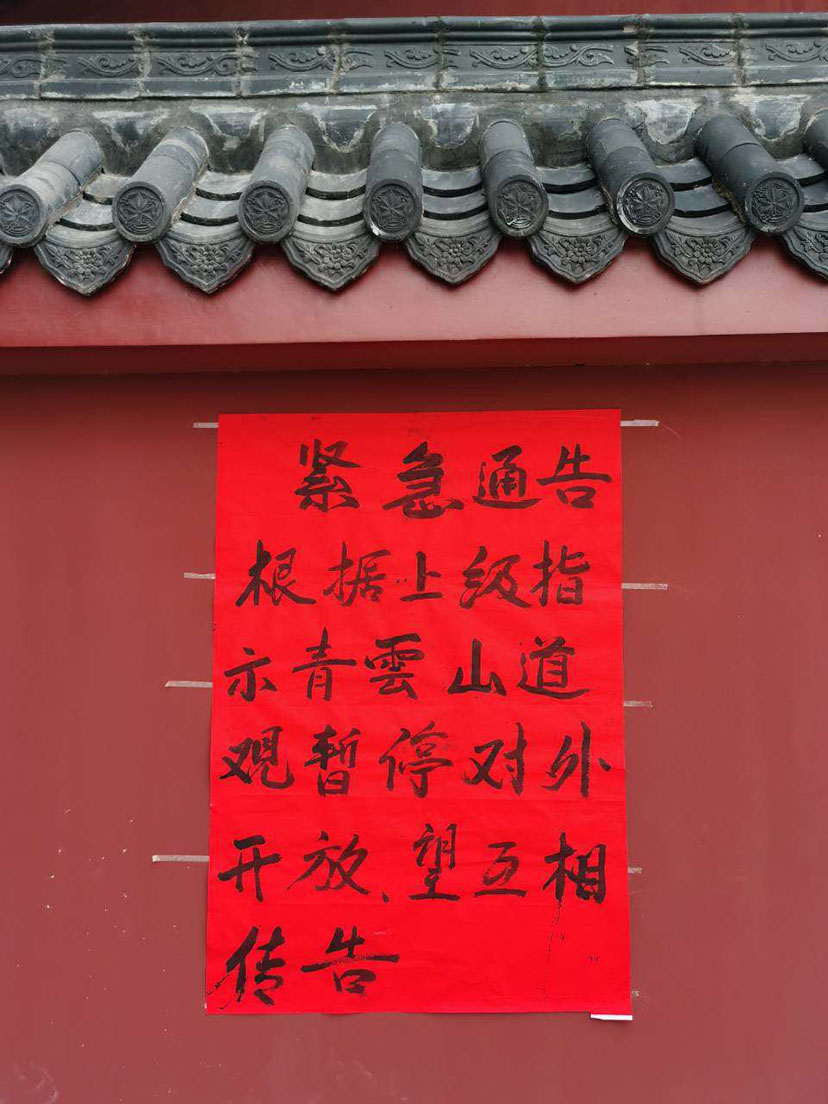 紧急通告
根据上级指
示青雲山道
观暂停对外
开放、望互相
传告